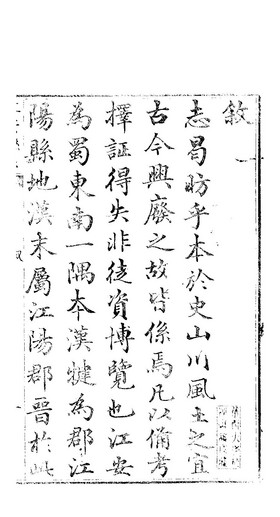 敘
志昌昉乎本於史山川風土之宜
古今興廢之故皆係焉凡以備考
擇証得失非徒資博覽也江安
為蜀東南一隅本漢犍為郡江
陽縣地漢末屬江陽郡晉於此